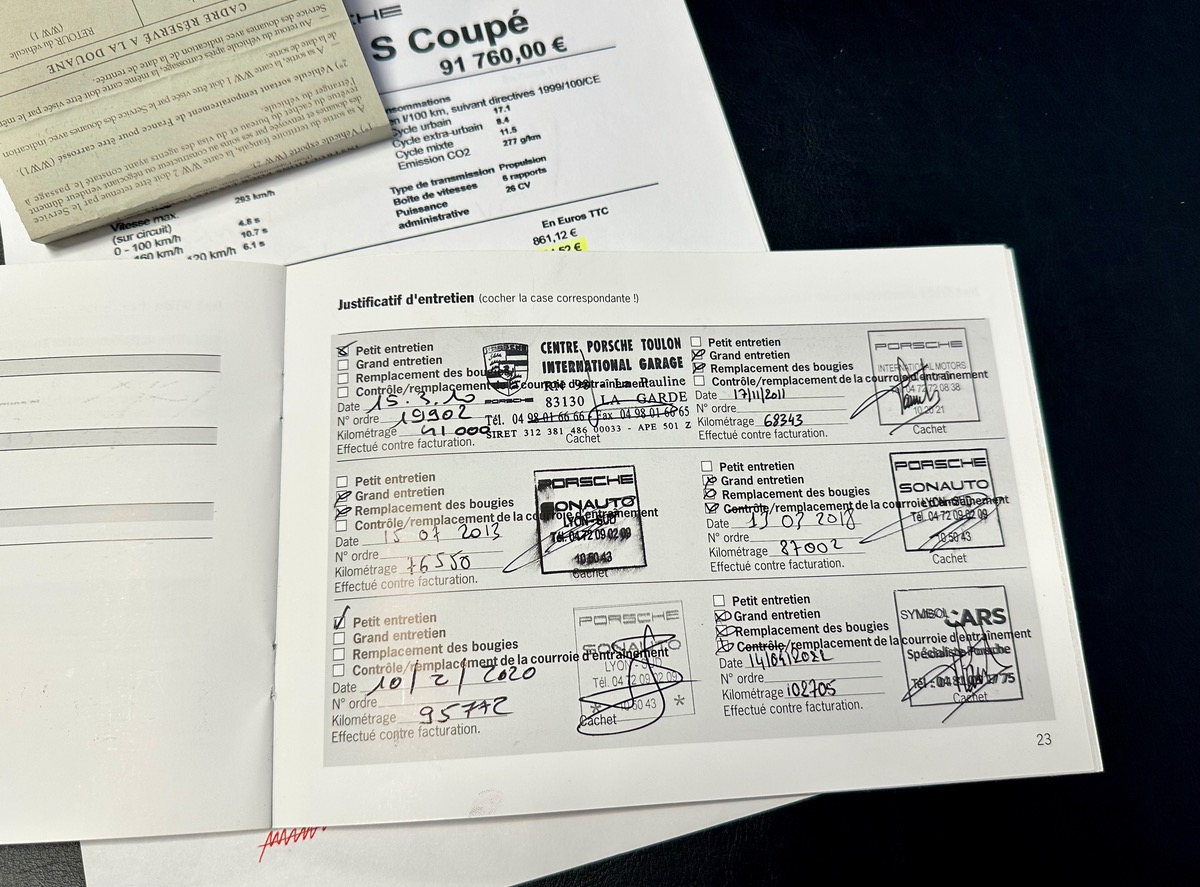 CADRE RÉSERVÉ A LA DOUANE
RETOUR du véhicule
(WW 1)
S Coupé
91 760,00 €
en l/100 km, suivant directives 1999/100/CE
Cycle urbain 17.1
Cycle extra-urbain 8.4
Cycle mixte 11.5
Emission CO2 277 g/km
Type de transmission Propulsion
Boîte de vitesses 6 rapports
Puissance administrative 26 CV
Vitesse max. (sur circuit) 293 km/h
0 - 100 km/h 4.8 s
10.7 s
6.1 s
En Euros TTC
861,12 €
Justificatif d'entretien (cocher la case correspondante !)
Petit entretien
Grand entretien
Remplacement des bougies
Contrôle/remplacement de la courroie d'entraînement
Date 15.3.10
N° ordre 19902
Kilométrage 41 000
Effectué contre facturation.
Cachet
PORSCHE
CENTRE PORSCHE TOULON
INTERNATIONAL GARAGE
RN 98 - La Pauline
83130 LA GARDE
Tél. 04 98 01 66 66 / Fax 04 98 01 66 65
SIRET 312 381 486 00033 - APE 501 Z
Petit entretien
Grand entretien
Remplacement des bougies
Contrôle/remplacement de la courroie d'entraînement
Date 17/11/2011
N° ordre
Kilométrage 68343
Effectué contre facturation.
Cachet
PORSCHE
INTERNATIONAL MOTORS
04 72 72 08 38
10.20 21
Petit entretien
Grand entretien
Remplacement des bougies
Contrôle/remplacement de la courroie d'entraînement
Date 15 07 2013
N° ordre
Kilométrage 76550
Effectué contre facturation.
Cachet
PORSCHE
SONAUTO
LYON-SUD
Tél. 04 72 09 02 09
10 50 43
Petit entretien
Grand entretien
Remplacement des bougies
Contrôle/remplacement de la courroie d'entraînement
Date 2018
N° ordre
Kilométrage 87002
Effectué contre facturation.
Cachet
PORSCHE
SONAUTO
LYON-SUD
Tél. 04 72 09 02 09
10 50 43
Petit entretien
Grand entretien
Remplacement des bougies
Contrôle/remplacement de la courroie d'entraînement
Date 10/2/2020
N° ordre
Kilométrage 95772
Effectué contre facturation.
Cachet
PORSCHE
SONAUTO
LYON-SUD
Tél. 04 72 09 02 09
* 10 50 43 *
Petit entretien
Grand entretien
Remplacement des bougies
Contrôle/remplacement de la courroie d'entraînement
Date 14/04/2022
N° ordre
Kilométrage 102705
Effectué contre facturation.
Cachet
SYMBOL CARS
Spécialiste Porsche
23